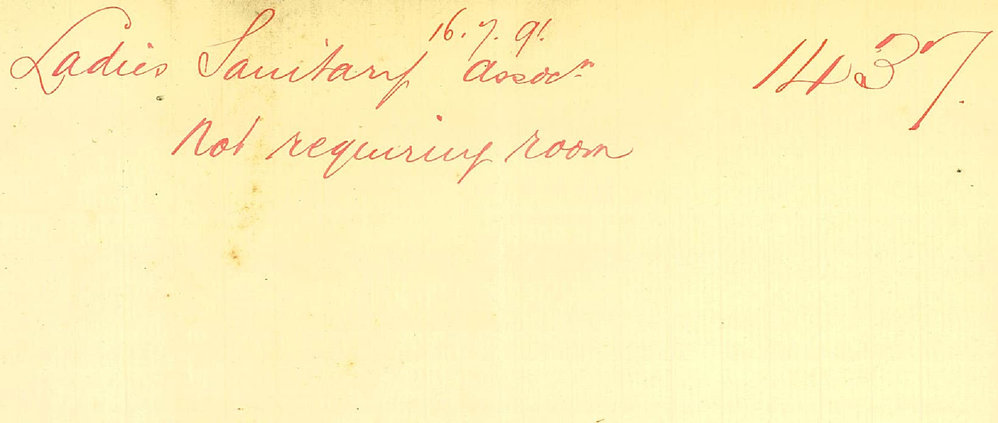 16.7.91.
Ladies Sanitary Assocn 1437.
Not requiring room